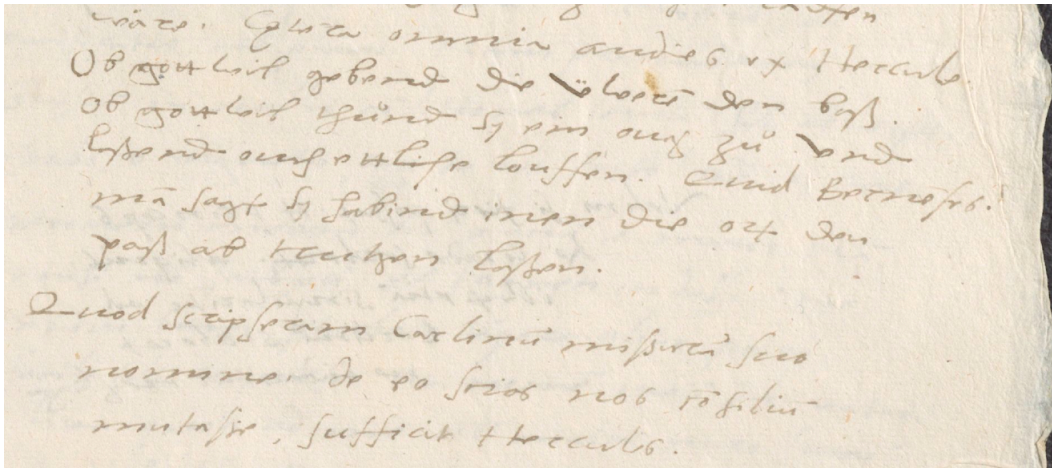 wäre. Cetera omnia audies ex Hercule.
Ob gottwil gebend die üwerē den baß.
Ob gottwil thůnd sy ein oug zů vnd
lassend ouch ettliche louffen. Quid Bernēses?
mā sagt sy habind inen die ort den
paß ab trutzen lassen.
Quod scripseram Carlinū missurū suo
nomine. de eo scias nos cōsiliū
mutasse, sufficit Hercules.